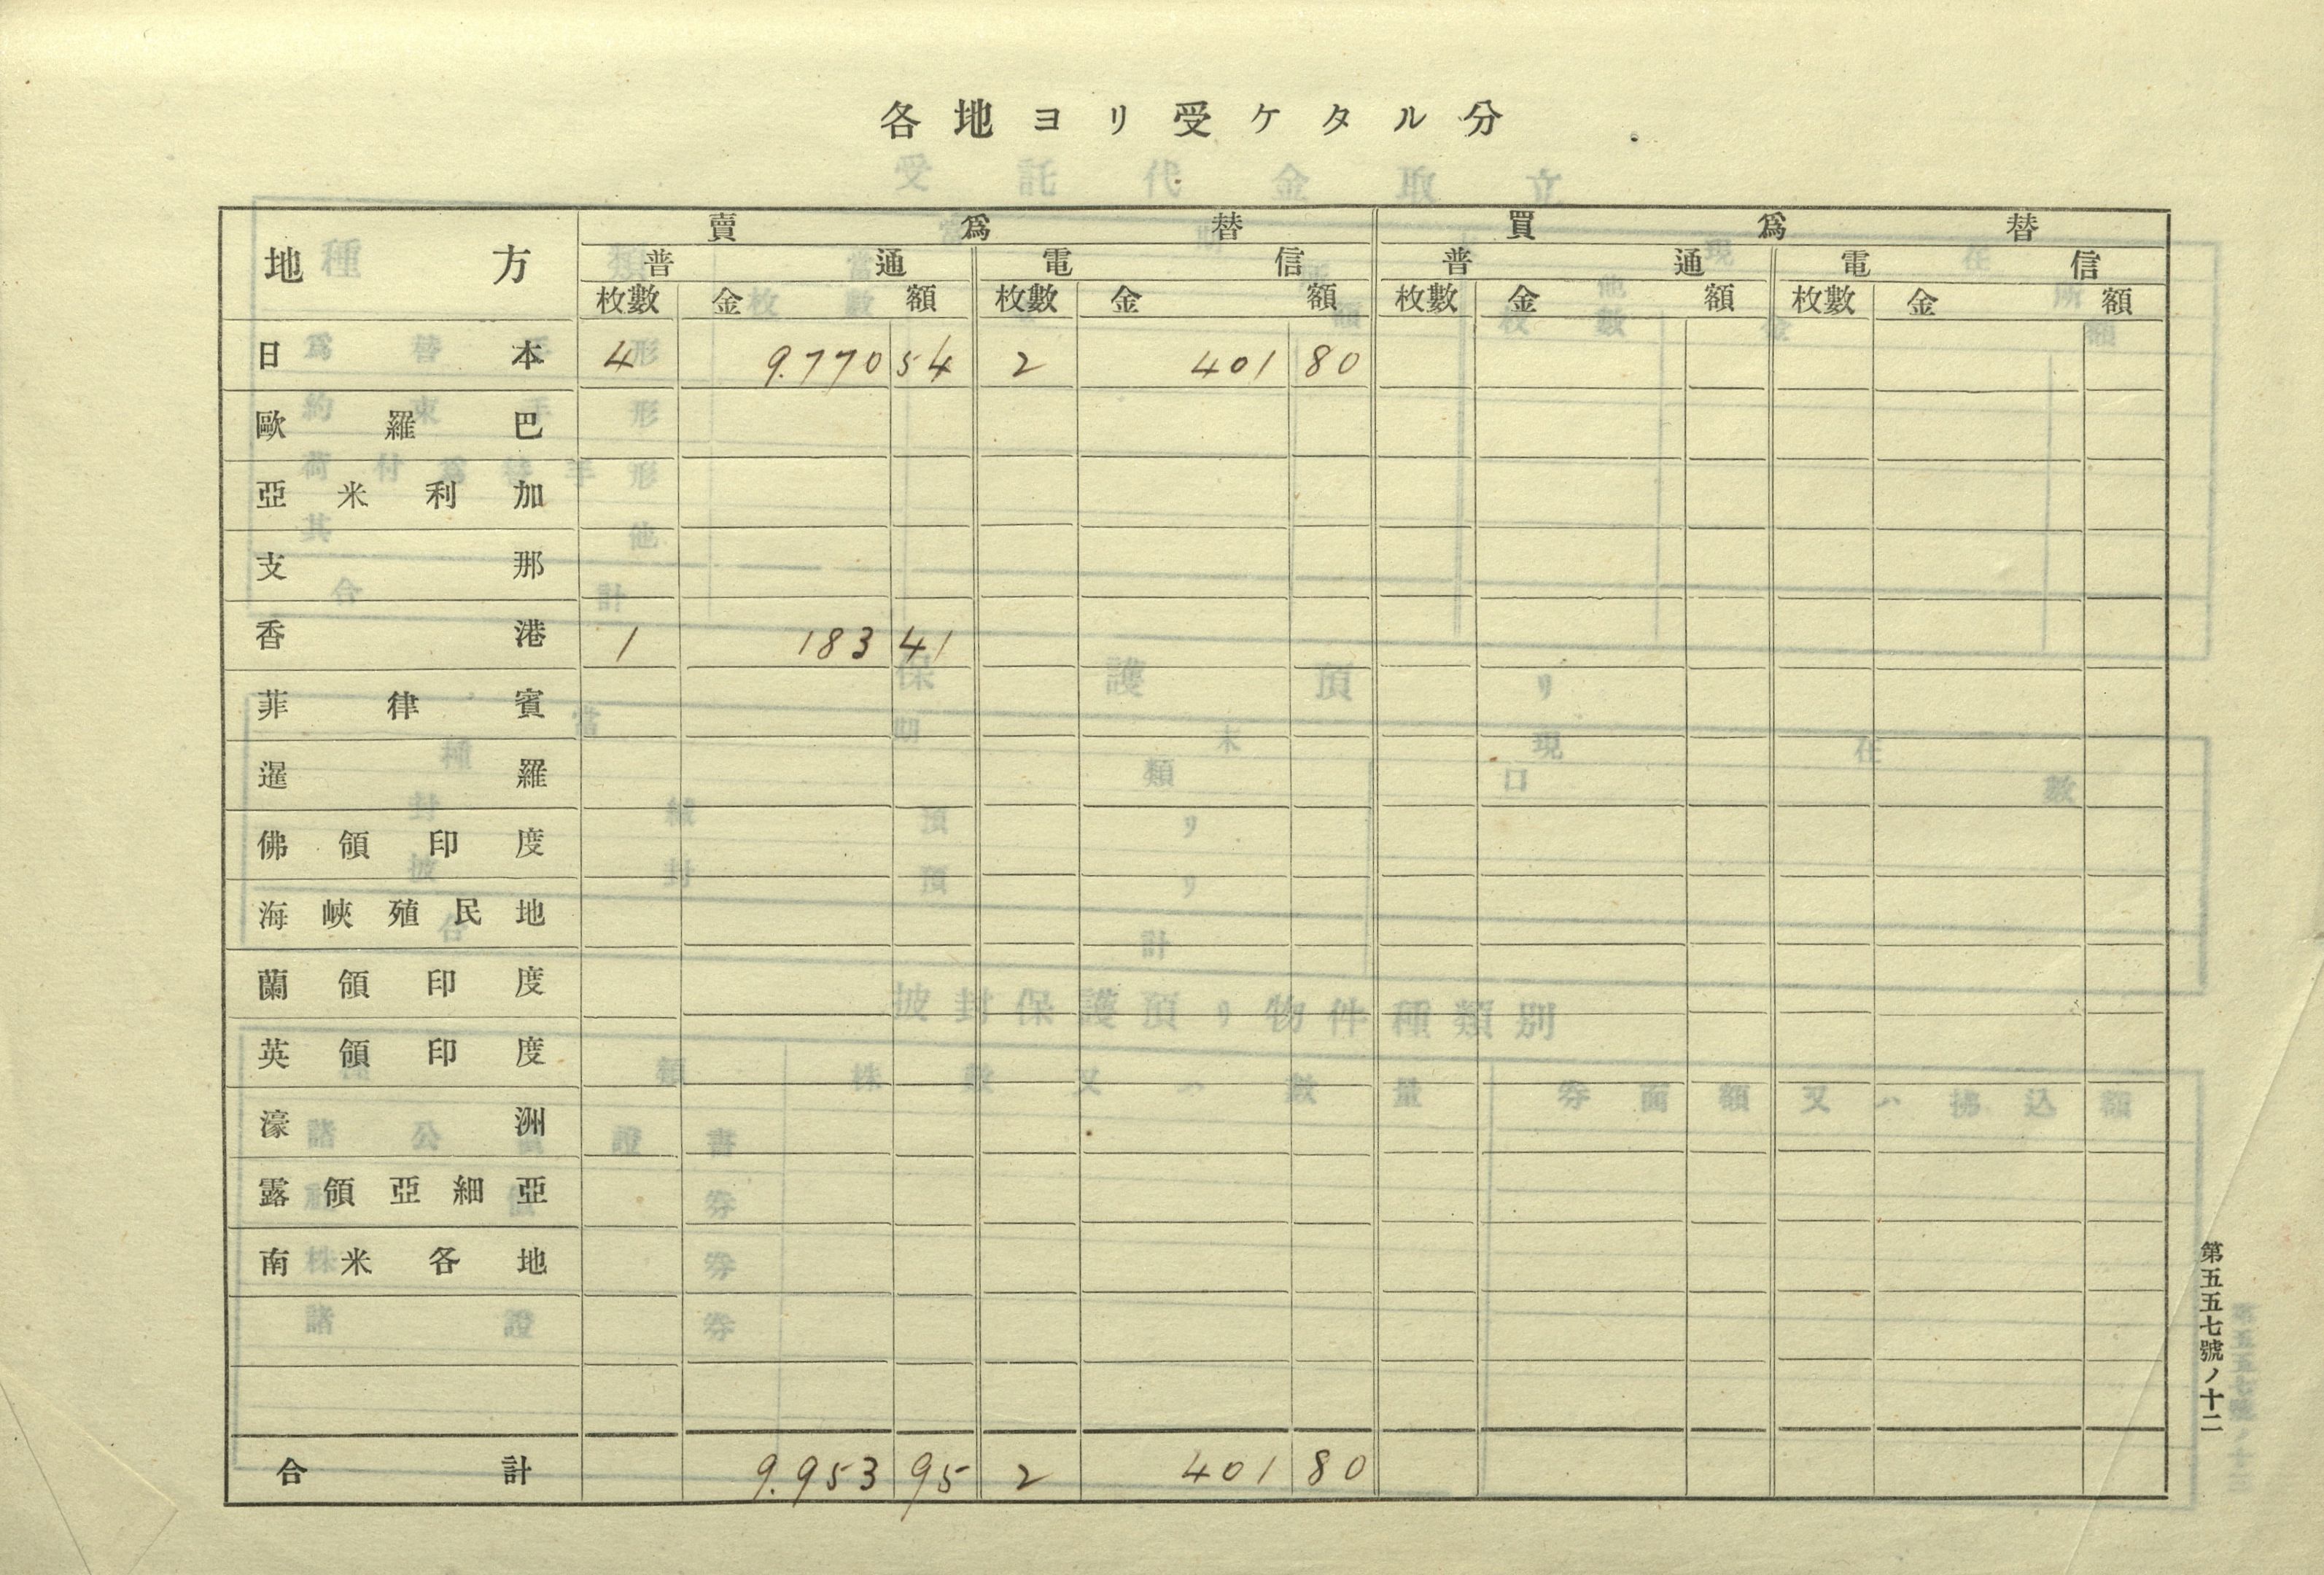 各地ヨリ受ケタル分
地方 賣爲替 買爲替
普通 電信 普通 電信
枚數 金額 枚數 金額 枚數 金額 枚數 金額
日本 4 9.770 54 2 401 80
歐羅巴
亞米利加
支那
香港 1 183 41
菲律賓
暹羅
佛領印度
海峽殖民地
蘭領印度
英領印度
濠洲
露領亞細亞
南米各地
合計 9.953 95 2 401 80
第五五七號ノ十二